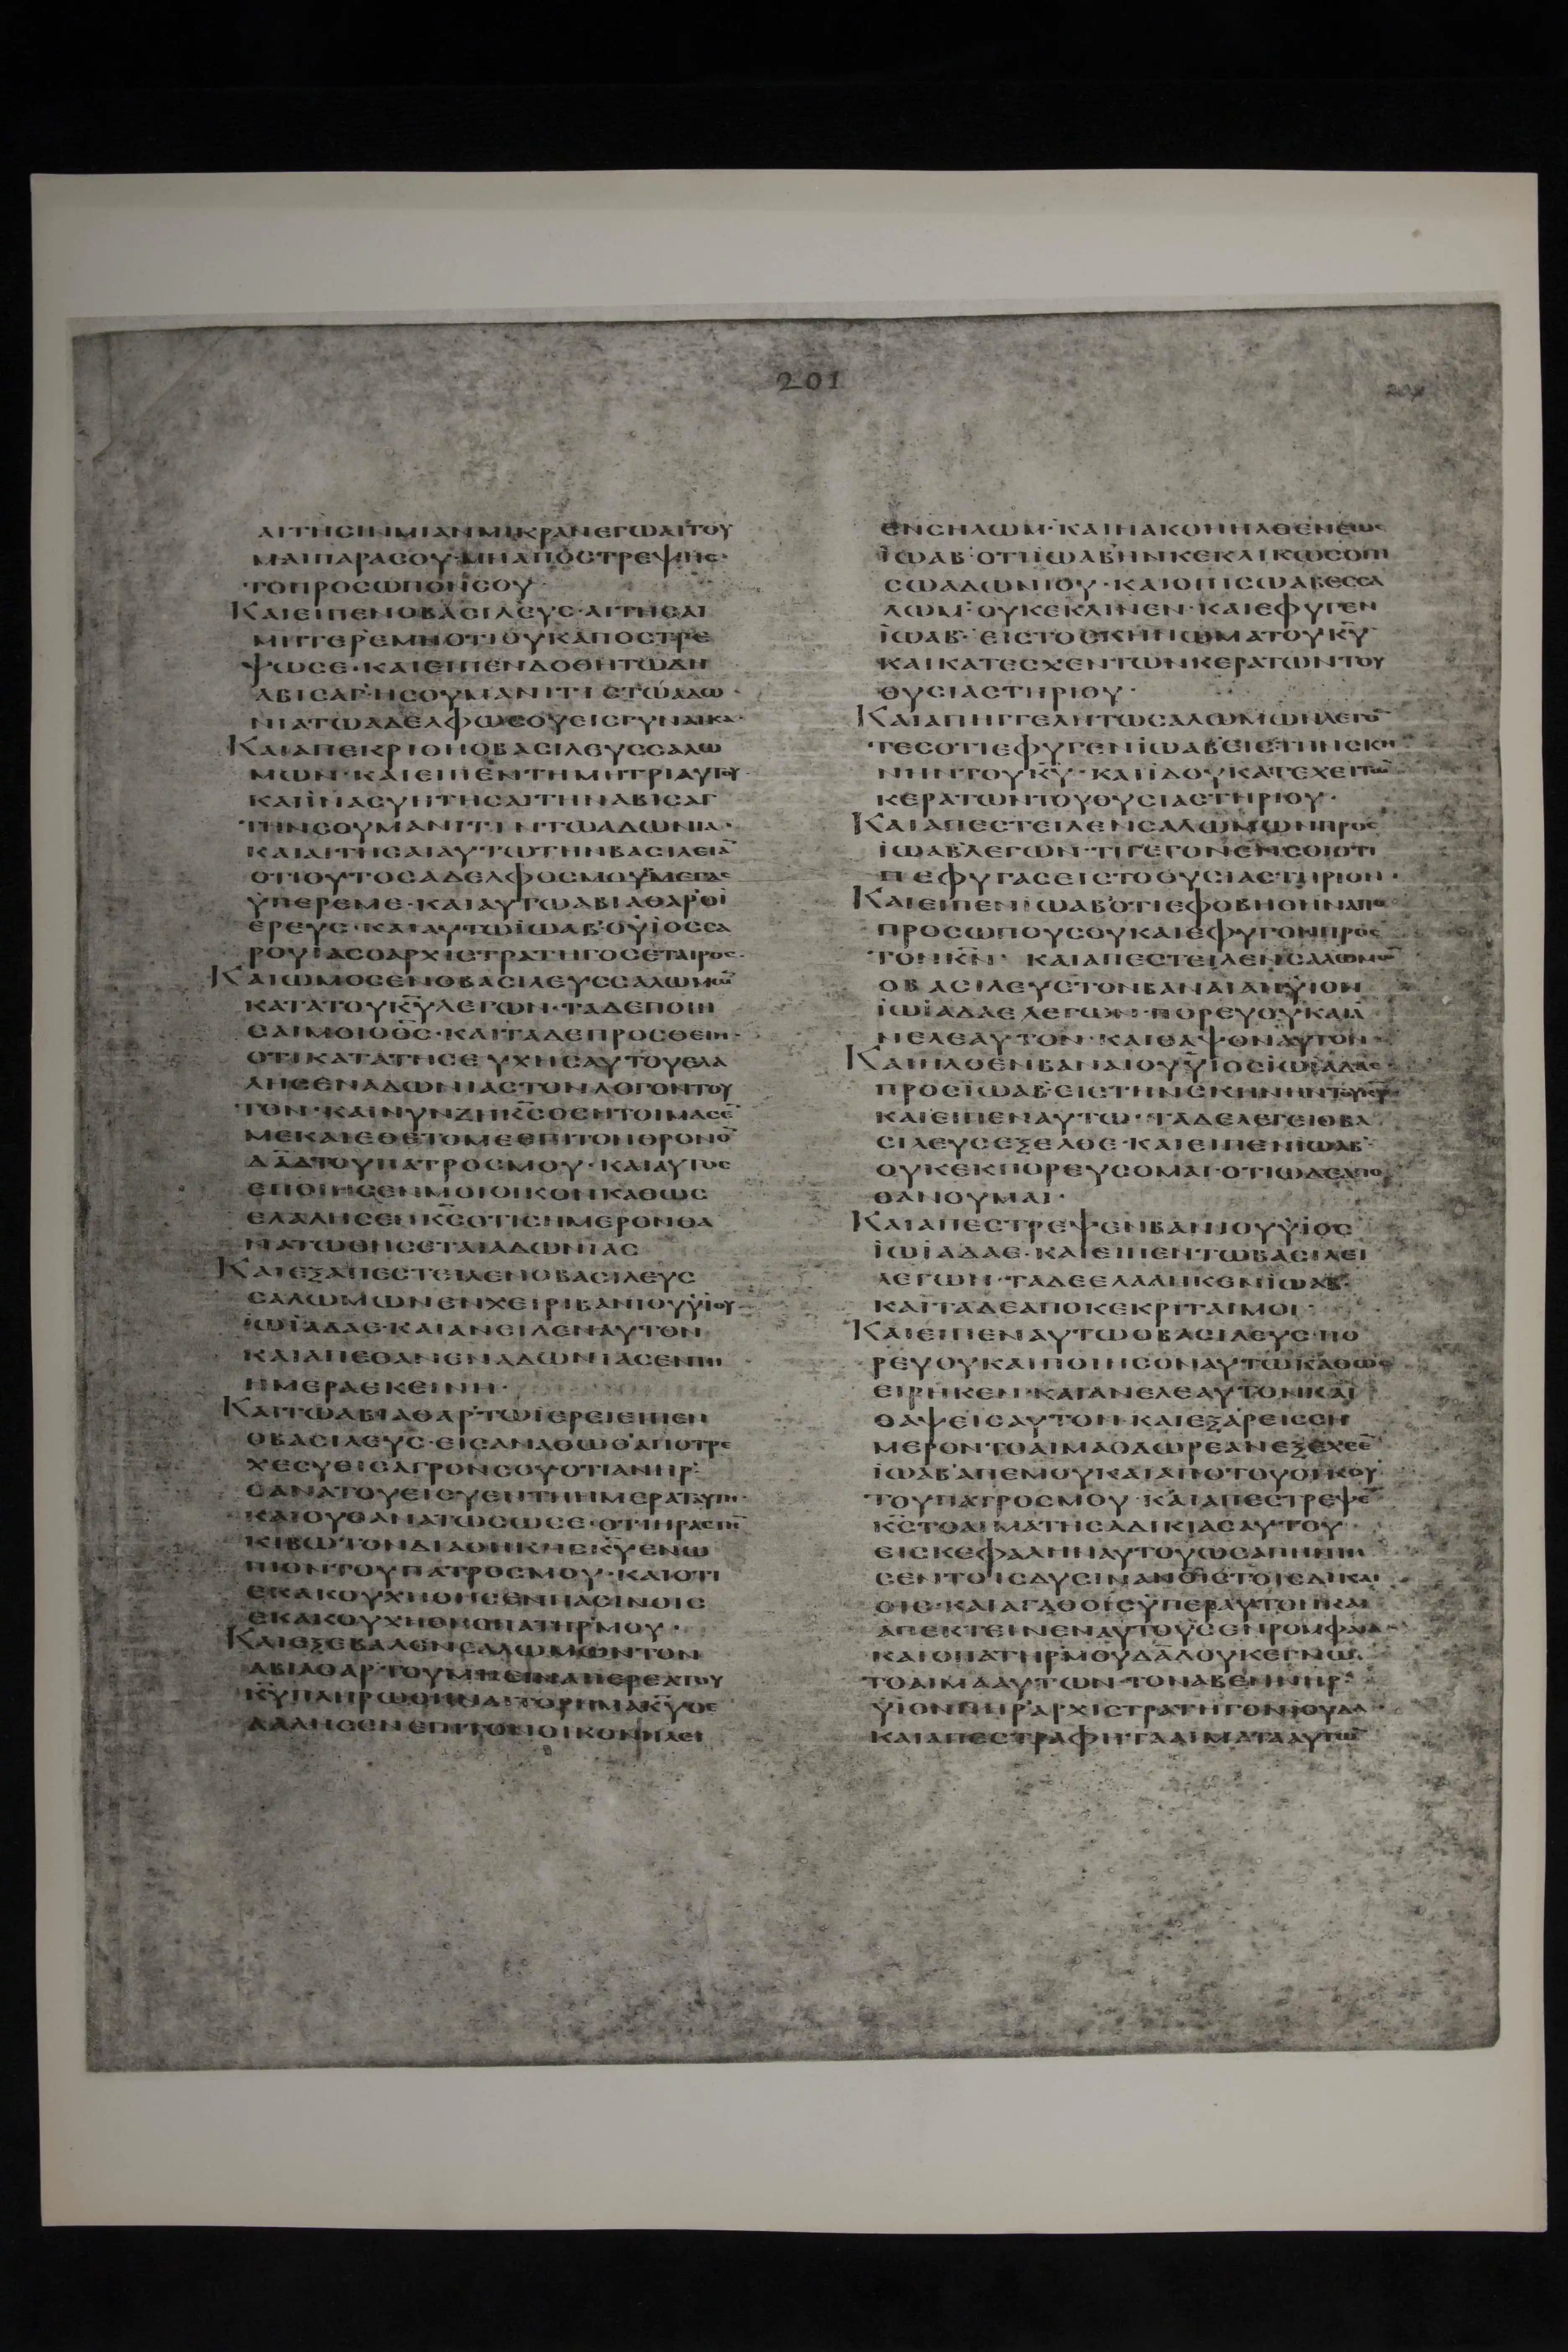 201
ΑΙΤΗСΙΝΜΙΑΝΜΙΚΡΑΝΕΓΩΑΙΤΟΥ
ΜΑΙΠΑΡΑСΟΥ·ΜΗΑΠΟСΤΡΕΨΗС·
ΤΟΠΡΟСΩΠΟΝСΟΥ·
ΚΑΙΕΙΠΕΝΟΒΑСΙΛΕΥС·ΑΙΤΗСΑΙ
ΜΗΤΕΡΕΜΗΟΤΙΟΥΚΑΠΟСΤΡΕ
ΨΩСΕ·ΚΑΙΕΙΠΕΝΔΟΘΗΤΩΔΗ
ΑΒΙСΑΓ·ΗСΟΥΜΑΝΙΤΙСΤΩΑΔΩ·
ΝΙΑΤΩΑΔΕΛΦΩСΟΥΕΙСΓΥΝΑΙΚΑ·
ΚΑΙΑΠΕΚΡΙΘΗΟΒΑСΙΛΕΥССΑΛΩ
ΜΩΝ·ΚΑΙΕΙΠΕΝΤΗΜΗΤΡΙΑΥΤΟΥ·
ΚΑΙΪΝΑСΥΗΤΗСΑΙΤΗΝΑΒΙСΑΓ
ΤΗΝСΟΥΜΑΝΙΤΙΝΤΩΑΔΩΝΙΑ·
ΚΑΙΑΙΤΗСΑΙΑΥΤΩΤΗΝΒΑСΙΛΕΙΑ̅
ΟΤΙΟΥΤΟСΑΔΕΛΦΟСΜΟΥΜΕΓΑС
ΫΠΕΡΕΜΕ·ΚΑΙΑΥΤΩΑΒΙΑΘΑΡʼΟΪ
ΕΡΕΥС·ΚΑΙΑΥΤΩΪΩΑΒʼΟΫΪΟССΑ
ΡΟΥΙΑСΟΑΡΧΙСΤΡΑΤΗΓΟСΕΤΑΙΡΟС·
ΚΑΙΩΜΟСΕΝΟΒΑСΙΛΕΥССΑΛΩΜΩ̅
ΚΑΤΑΤΟΥΚ̅Υ̅ΛΕΓΩΝ·ΤΑΔΕΠΟΙΗ
СΑΙΜΟΙΟΘ̅С̅·ΚΑΙΤΑΔΕΠΡΟСΘΕΙΗ·
ΟΤΙΚΑΤΑΤΗСΕΥΧΗСΑΥΤΟΥΕΛΑ
ΛΗСΕΝΑΔΩΝΙΑСΤΟΝΛΟΓΟΝΤΟΥ
ΤΟΝ·ΚΑΙΝΥΝΖΗΚ̅С̅ΟСΗΤΟΙΜΑСΕ̅
ΜΕΚΑΙΕΘΕΤΟΜΕΕΠΙΤΟΝΘΡΟΝΟ̅
Δ̅Α̅Δ̅ΤΟΥΠΑΤΡΟСΜΟΥ·ΚΑΙΑΥΤΟС
ΕΠΟΙΗСΕΝΜΟΙΟΙΚΟΝΚΑΘΩС
ΕΛΑΛΗСΕΝΚ̅С̅ΟΤΙСΗΜΕΡΟΝΘΑ
ΝΑΤΩΘΗСΕΤΑΙΑΔΩΝΙΑС
ΚΑΙΕΞΑΠΕСΤΕΙΛΕΝΟΒΑСΙΛΕΥС
СΑΛΩΜΩΝΕΝΧΕΙΡΙΒΑΝΙΟΥΫΪΟΥ
ΪΩΪΑΔΑΕ·ΚΑΙΑΝΕΙΛΕΝΑΥΤΟΝ
ΚΑΙΑΠΕΘΑΝΕΝΑΔΩΝΙΑСΕΝΤΗ
ΗΜΕΡΑΕΚΕΙΝΗ·
ΚΑΙΤΩΑΒΙΑΘΑΡʼΤΩΪΕΡΕΙΕΙΠΕΝ
ΟΒΑСΙΛΕΥС·ΕΙСΑΝΑΘΩΘʼΑΠΟΤΡΕ
ΧΕСΥΘΙСΑΓΡΟΝСΟΥΟΤΙΑΝΗΡʼ
ΘΑΝΑΤΟΥΕΙСΥΕΝΤΗΗΜΕΡΑΤΑΥΤΗ·
ΚΑΙΟΥΘΑΝΑΤΩСΩСΕ·ΟΤΙΗΡΑСΤΗ̅
ΚΙΒΩΤΟΝΔΙΑΘΗΚΗСΚ̅Υ̅ΕΝΩ
ΠΙΟΝΤΟΥΠΑΤΡΟСΜΟΥ·ΚΑΙΟΤΙ
ΕΚΑΚΟΥΧΗΘΗСΕΝΠΑСΙΝΟΙС
ΕΚΑΚΟΥΧΗΘΗΟΠΑΤΗΡʼΜΟΥ·
ΚΑΙΕΞΕΒΑΛΕΝСΑΛΩΜΩΝΤΟΝ
ΑΒΙΑΘΑΡʼΤΟΥΜΗΕΙΝΑΙΪΕΡΕΑΤΟΥ
Κ̅Υ̅ΠΛΗΡΩΘΗΝΑΙΤΟΡΗΜΑΚ̅Υ̅Ο
ΕΛΑΛΗСΕΝΕΠΙΤΟΝΟΙΚΟΝΗΛΕΙ
ΕΝСΗΛΩΜ·ΚΑΙΗΑΚΟΗΗΛΘΕΝΕΩС
ΪΩΑΒʼΟΤΙΪΩΑΒʼΗΝΚΕΚΛΙΚΩСΟΠΙ
СΩΑΔΩΝΙΟΥ·ΚΑΙΟΠΙСΩΑΒΕССΑ
ΛΩΜ·ΟΥΚΕΚΛΙΝΕΝ·ΚΑΙΕΦΥΓΕΝ
ΪΩΑΒ·ΕΙСΤΟСΚΗΝΩΜΑΤΟΥΚ̅Υ̅
ΚΑΙΚΑΤΕСΧΕΝΤΩΝΚΕΡΑΤΩΝΤΟΥ
ΘΥСΙΑСΤΗΡΙΟΥ·
ΚΑΙΑΠΗΓΓΕΛΗΤΩСΑΛΩΜΩΝΛΕΓΟ̅
ΤΕСΟΤΙΕΦΥΓΕΝΪΩΑΒʼΕΙСΤΗΝСΚΗ
ΝΗΝΤΟΥΚ̅Υ̅·ΚΑΙΪΔΟΥΚΑΤΕΧΕΙΤΩ̅
ΚΕΡΑΤΩΝΤΟΥΘΥСΙΑСΤΗΡΙΟΥ·
ΚΑΙΑΠΕСΤΕΙΛΕΝСΑΛΩΜΩΝΠΡΟС
ΪΩΑΒʼΛΕΓΩΝ·ΤΙΓΕΓΟΝΕΝСΟΙΟΤΙ
ΠΕΦΥΓΑСΕΙСΤΟΘΥСΙΑСΤΗΡΙΟΝ·
ΚΑΙΕΙΠΕΝΪΩΑΒʼΟΤΙΕΦΟΒΗΘΗΝΑΠΟ
ΠΡΟСΩΠΟΥСΟΥΚΑΙΕΦΥΓΟΝΠΡΟС
ΤΟΝΚ̅Ν̅·ΚΑΙΑΠΕСΤΕΙΛΕΝСΑΛΩΜΩ̅
ΟΒΑСΙΛΕΥСΤΟΝΒΑΝΑΙΑΝΫΙΟΝ
ΪΩΪΑΔΑΕΛΕΓΩΝ·ΠΟΡΕΥΟΥΚΑΙΑ
ΝΕΛΕΑΥΤΟΝ·ΚΑΙΘΑΨΟΝΑΥΤΟΝ·
ΚΑΙΗΛΘΕΝΒΑΝΑΙΟΥΫΪΟСΪΩΪΑΔΑΕ·
ΠΡΟСΪΩΑΒʼΕΙСΤΗΝСΚΗΝΗΝΤΟΥΚ̅Υ̅
ΚΑΙΕΙΠΕΝΑΥΤΩ·ΤΑΔΕΛΕΓΕΙΟΒΑ
СΙΛΕΥСΕΞΕΛΘΕ·ΚΑΙΕΙΠΕΝΪΩΑΒʼ
ΟΥΚΕΚΠΟΡΕΥСΟΜΑΙ·ΟΤΙΩΔΕΑΠΟ
ΘΑΝΟΥΜΑΙ·
ΚΑΙΑΠΕСΤΡΕΨΕΝΒΑΝΙΟΥΫΪΟС
ΪΩΪΑΔΑΕ·ΚΑΙΕΙΠΕΝΤΩΒΑСΙΛΕΙ
ΛΕΓΩΝ·ΤΑΔΕΕΛΑΛΗΚΕΝΪΩΑΒʼ
ΚΑΙΤΑΔΕΑΠΟΚΕΚΡΙΤΑΙΜΟΙ·
ΚΑΙΕΙΠΕΝΑΥΤΩΟΒΑСΙΛΕΥС·ΠΟ
ΡΕΥΟΥΚΑΙΠΟΙΗСΟΝΑΥΤΩΚΑΘΩС
ΕΙΡΗΚΕΝ·ΚΑΙΑΝΕΛΕΑΥΤΟΝΚΑΙ
ΘΑΨΕΙСΑΥΤΟΝ·ΚΑΙΕΞΑΡΕΙССΗ
ΜΕΡΟΝΤΟΑΙΜΑΟΔΩΡΕΑΝΕΞΕΧΕΕ̅
ΪΩΑΒʼΑΠΕΜΟΥΚΑΙΑΠΟΤΟΥΟΙΚΟΥ
ΤΟΥΠΑΤΡΟСΜΟΥ·ΚΑΙΑΠΕСΤΡΕΨΕ̅
Κ̅С̅ΤΟΑΙΜΑΤΗСΑΔΙΚΙΑСΑΥΤΟΥ·
ΕΙСΚΕΦΑΛΗΝΑΥΤΟΥΩСΑΠΗΝΤΗ
СΕΝΤΟΙСΔΥСΙΝΑΝΟΙСΤΟΙСΔΙΚΑΙ
ΟΙС·ΚΑΙΑΓΑΘΟΙСΫΠΕΡΑΥΤΟΝΚΑΙ
ΑΠΕΚΤΕΙΝΕΝΑΥΤΟΥСΕΝΡΟΜΦΑΙΑ·
ΚΑΙΟΠΑΤΗΡʼΜΟΥΔ̅Α̅Δ̅ΟΥΚΕΓΝΩ·
ΤΟΑΙΜΑΑΥΤΩΝ·ΤΟΝΑΒΕΝΝΗΡʼ
ΫΪΟΝΝΗΡʼΑΡΧΙСΤΡΑΤΗΓΟΝΪΟΥΔΑ·
ΚΑΙΑΠΕСΤΡΑΦΗΤΑΑΙΜΑΤΑΑΥΤΩ̅